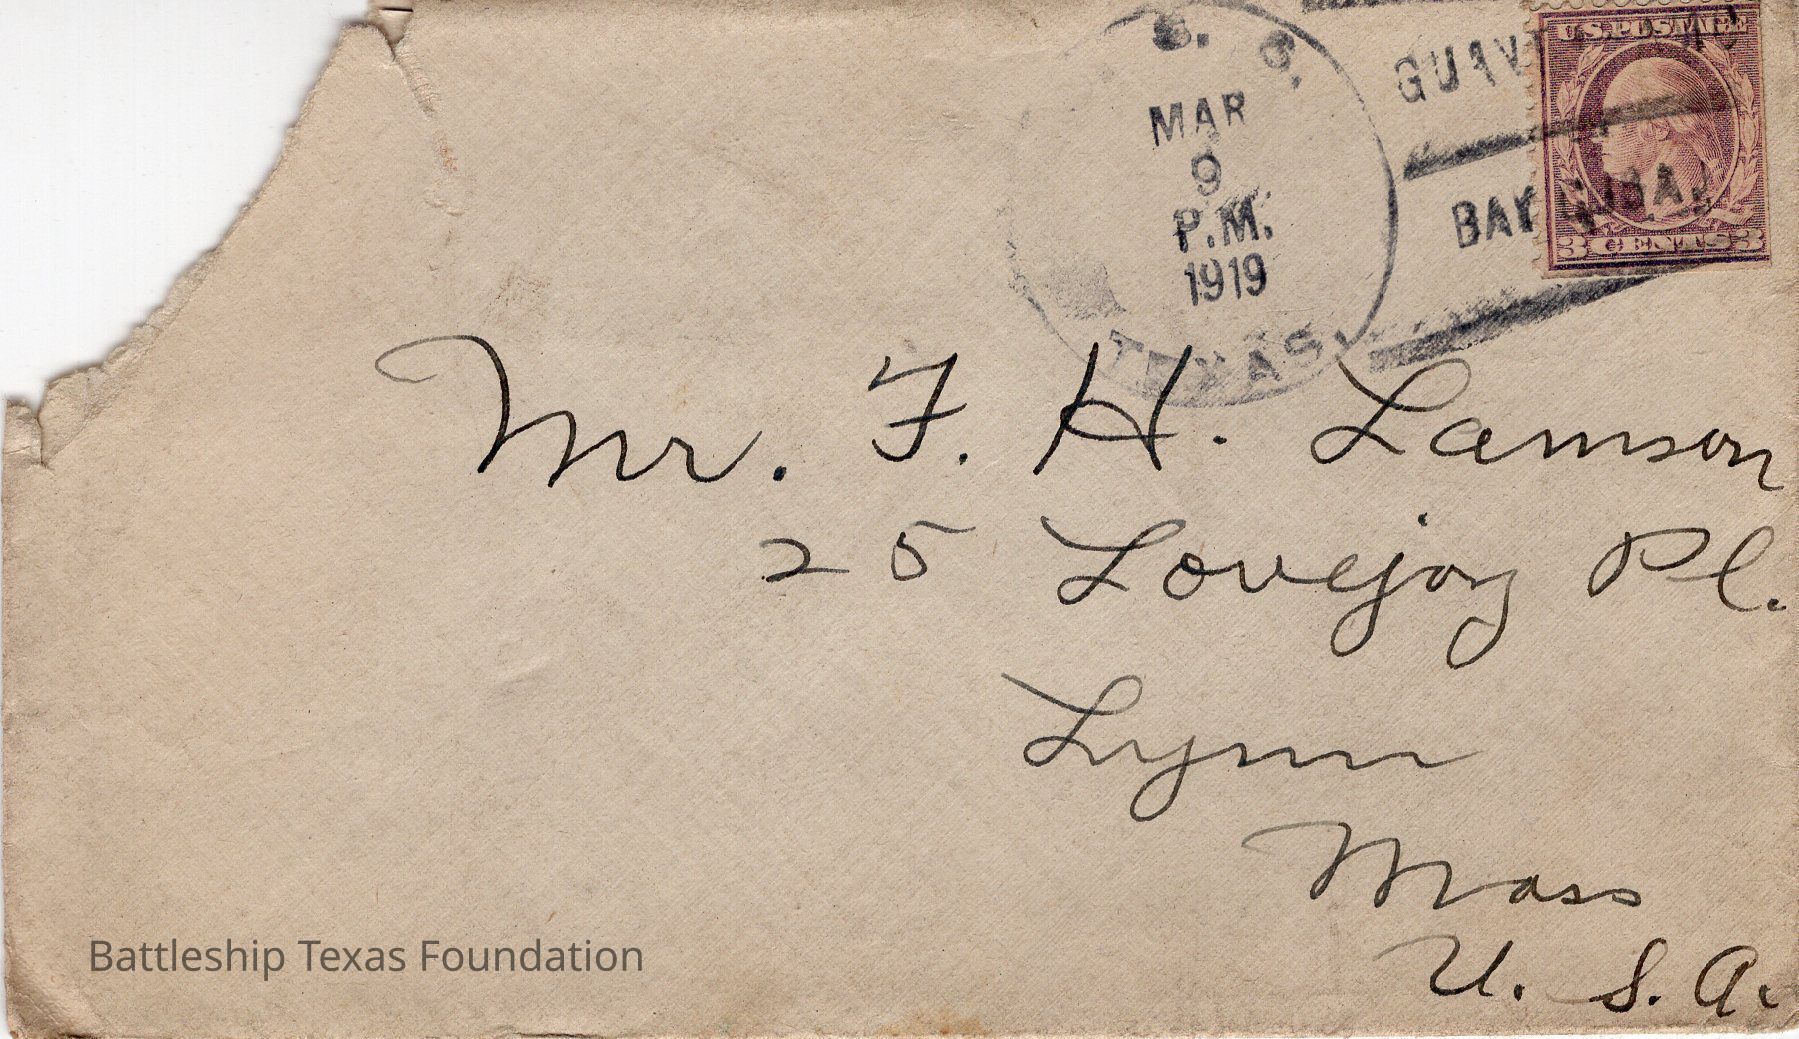 U.S.POSTAGE
S. S.
MAR
9
P.M.
1919
TEXAS.
BAY CUBA
3 CENTS 3
Mr. F. H. Lamson
25 Lovejoy Pl.
Lynn
Mass
U. S. A.
Battleship Texas Foundation